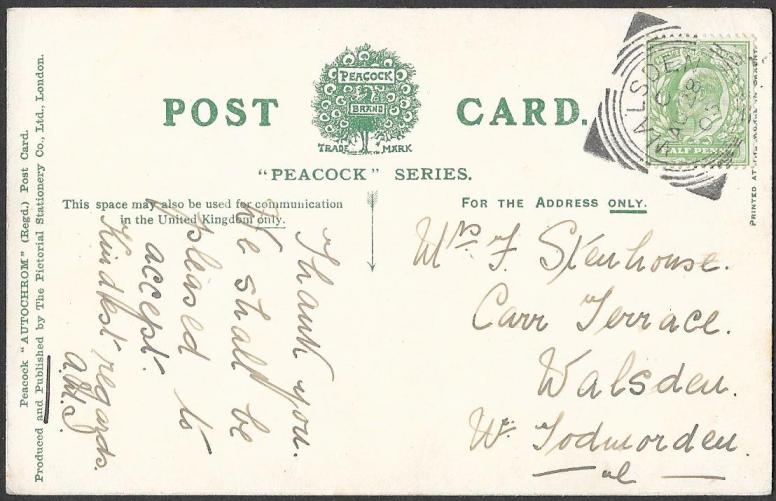 POST CARD.
PEACOCK
BRAND
TRADE MARK
"PEACOCK" SERIES.
This space may also be used for communication
in the United Kingdom only.
FOR THE ADDRESS ONLY.
Thank you.
We shall be
pleased to
accept.
Kindest regards.
Mrs F. Stenhouse.
Carr Terrace.
Walsden.
Nr. Todmorden.
WALSDEN
HALF PENNY
Peacock "AUTOCHROM" (Regd.) Post Card.
Produced and Published by The Pictorial Stationery Co., Ltd., London.
PRINTED AT THE